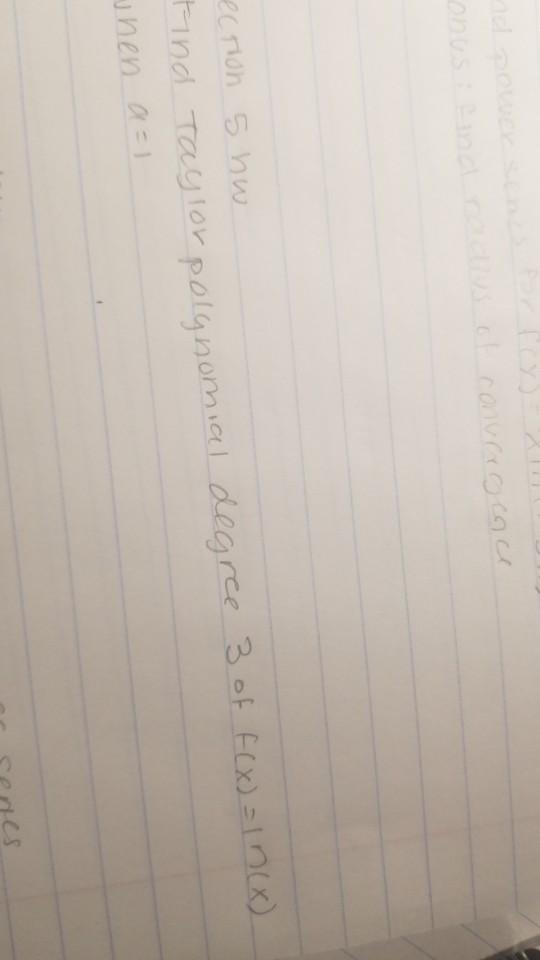 nd power series for f(x) =
onus: find radius of convergence
ection 5 hw
Find Taylor polynomial degree 3 of f(x) = ln(x)
when a=1
series